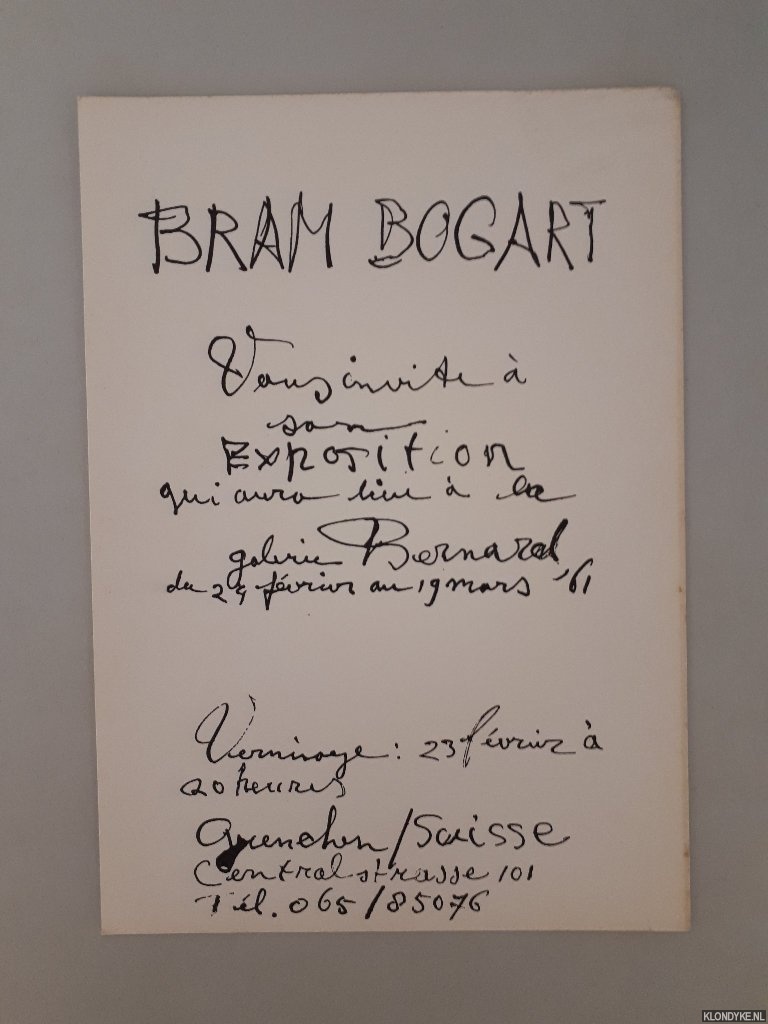 BRAM BOGART
Vous invite à
son
EXPOSITION
qui aura lieu à la
galerie Bernard
du 24 février au 19 mars '61
Vernissage : 23 février à
20 heures
Grenchen / Suisse
Centralstrasse 101
Tél. 065 / 85076
KLONDYKE.NL